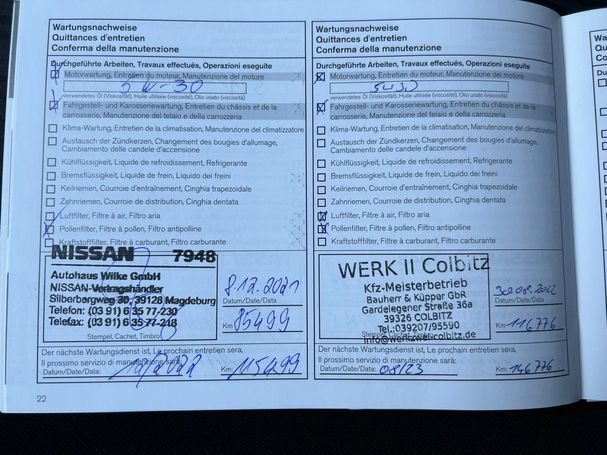 Wartungsnachweise
Quittances d'entretien
Conferma della manutenzione
Durchgeführte Arbeiten, Travaux effectués, Operazioni eseguite
Motorwartung, Entretien du moteur, Manutenzione del motore
5W-30
verwendetes Öl (Viskosität), Huile utilisée (viscosité), Olio usato (viscosità)
Fahrgestell- und Karosseriewartung, Entretien du châssis et de la
carrosserie, Manutenzione del telaio e della carrozzeria
Klima-Wartung, Entretien de la climatisation, Manutenzione del climatizzatore
Austausch der Zündkerzen, Changement des bougies d'allumage,
Cambiamento delle candele d'accensione
Kühlflüssigkeit, Liquide de refroidissement, Refrigerante
Bremsflüssigkeit, Liquide de frein, Liquido dei freini
Keilriemen, Courroie d'entraînement, Cinghia trapezoidale
Zahnriemen, Courroie de distribution, Cinghia dentata
Luftfilter, Filtre à air, Filtro aria
Pollenfilter, Filtre à pollen, Filtro antipolline
Kraftstofffilter, Filtre à carburant, Filtro carburante
NISSAN 7948
Autohaus Wilke GmbH
NISSAN-Vertragshändler
Silberbergweg 30, 39128 Magdeburg
Telefon: (03 91) 6 35 77-230
Telefax: (03 91) 6 35 77-218
Stempel, Cachet, Timbro
8.12.2021
Datum/Date/Data:
Km: 85499
Der nächste Wartungsdienst ist, Le prochain entretien sera,
Il prossimo servizio di manutenzione sarà:
Datum/Date/Data: 12/2022 Km: 115499
22
Wartungsnachweise
Quittances d'entretien
Conferma della manutenzione
Durchgeführte Arbeiten, Travaux effectués, Operazioni eseguite
Motorwartung, Entretien du moteur, Manutenzione del motore
5W30
verwendetes Öl (Viskosität), Huile utilisée (viscosité), Olio usato (viscosità)
Fahrgestell- und Karosseriewartung, Entretien du châssis et de la
carrosserie, Manutenzione del telaio e della carrozzeria
Klima-Wartung, Entretien de la climatisation, Manutenzione del climatizzatore
Austausch der Zündkerzen, Changement des bougies d'allumage,
Cambiamento delle candele d'accensione
Kühlflüssigkeit, Liquide de refroidissement, Refrigerante
Bremsflüssigkeit, Liquide de frein, Liquido dei freini
Keilriemen, Courroie d'entraînement, Cinghia trapezoidale
Zahnriemen, Courroie de distribution, Cinghia dentata
Luftfilter, Filtre à air, Filtro aria
Pollenfilter, Filtre à pollen, Filtro antipolline
Kraftstofffilter, Filtre à carburant, Filtro carburante
WERK II Colbitz
Kfz-Meisterbetrieb
Bauherr & Küpper GbR
Gardelegener Straße 36a
39326 COLBITZ
Tel.:039207/95590
info@werkzwei-colbitz.de
Stempel, Cachet, Timbro
30.08.2022
Datum/Date/Data:
Km: 116776
Der nächste Wartungsdienst ist, Le prochain entretien sera,
Il prossimo servizio di manutenzione sarà:
Datum/Date/Data: 08/23 Km: 146776